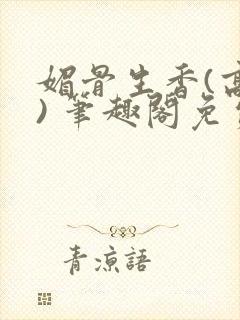 媚骨生香(高
) 筆趣閣免
青涼語